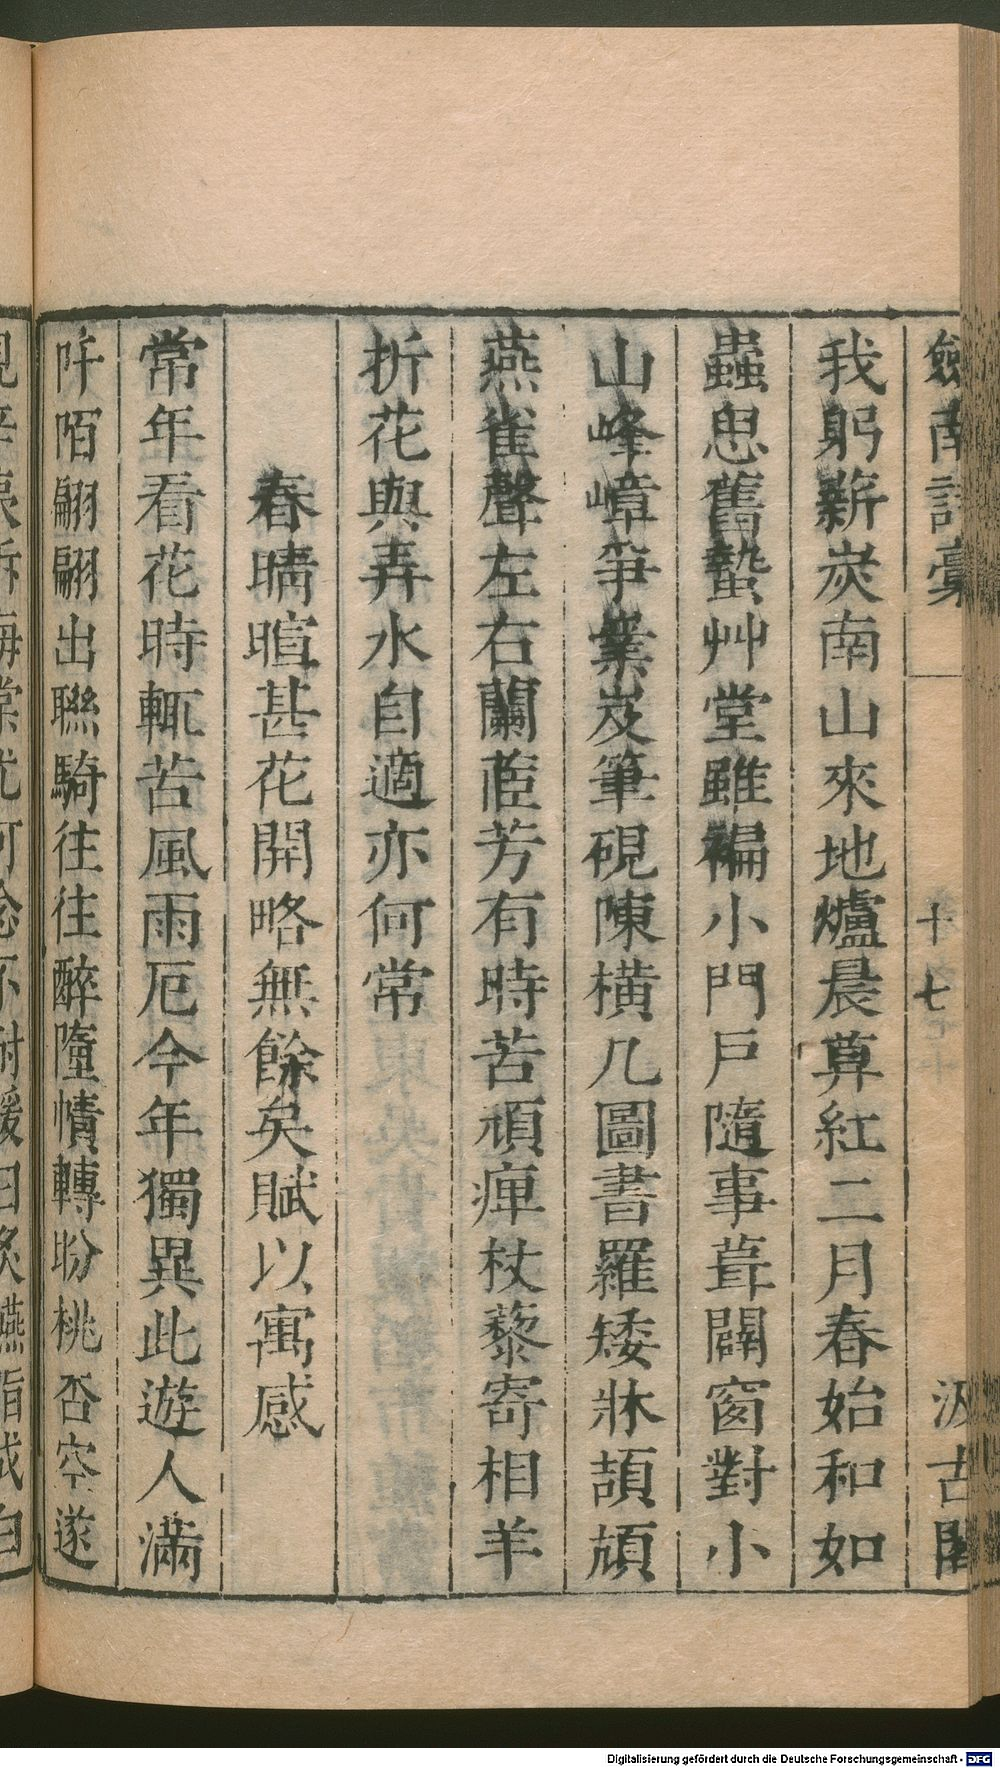 劍南詩稾 十七 汲古閣
我躬薪炭南山來地爐晨算紅二月春始和如
蟲思舊蟄艸堂雖褊小門戸隨事葺闢窗對小
山峰嶂爭業岌筆硯陳橫几圖書羅矮牀頡頏
燕雀聲左右蘭茝芳有時苦頑痺杖藜寄相羊
折花與弄水自適亦何常
春晴暄甚花開略無餘矣賦以寓感
常年看花時輒苦風雨厄今年獨異此遊人滿
阡陌翩翩出聯騎往往醉墮幘轉盼桃杏空遂
Digitalisierung gefördert durch die Deutsche Forschungsgemeinschaft - DFG